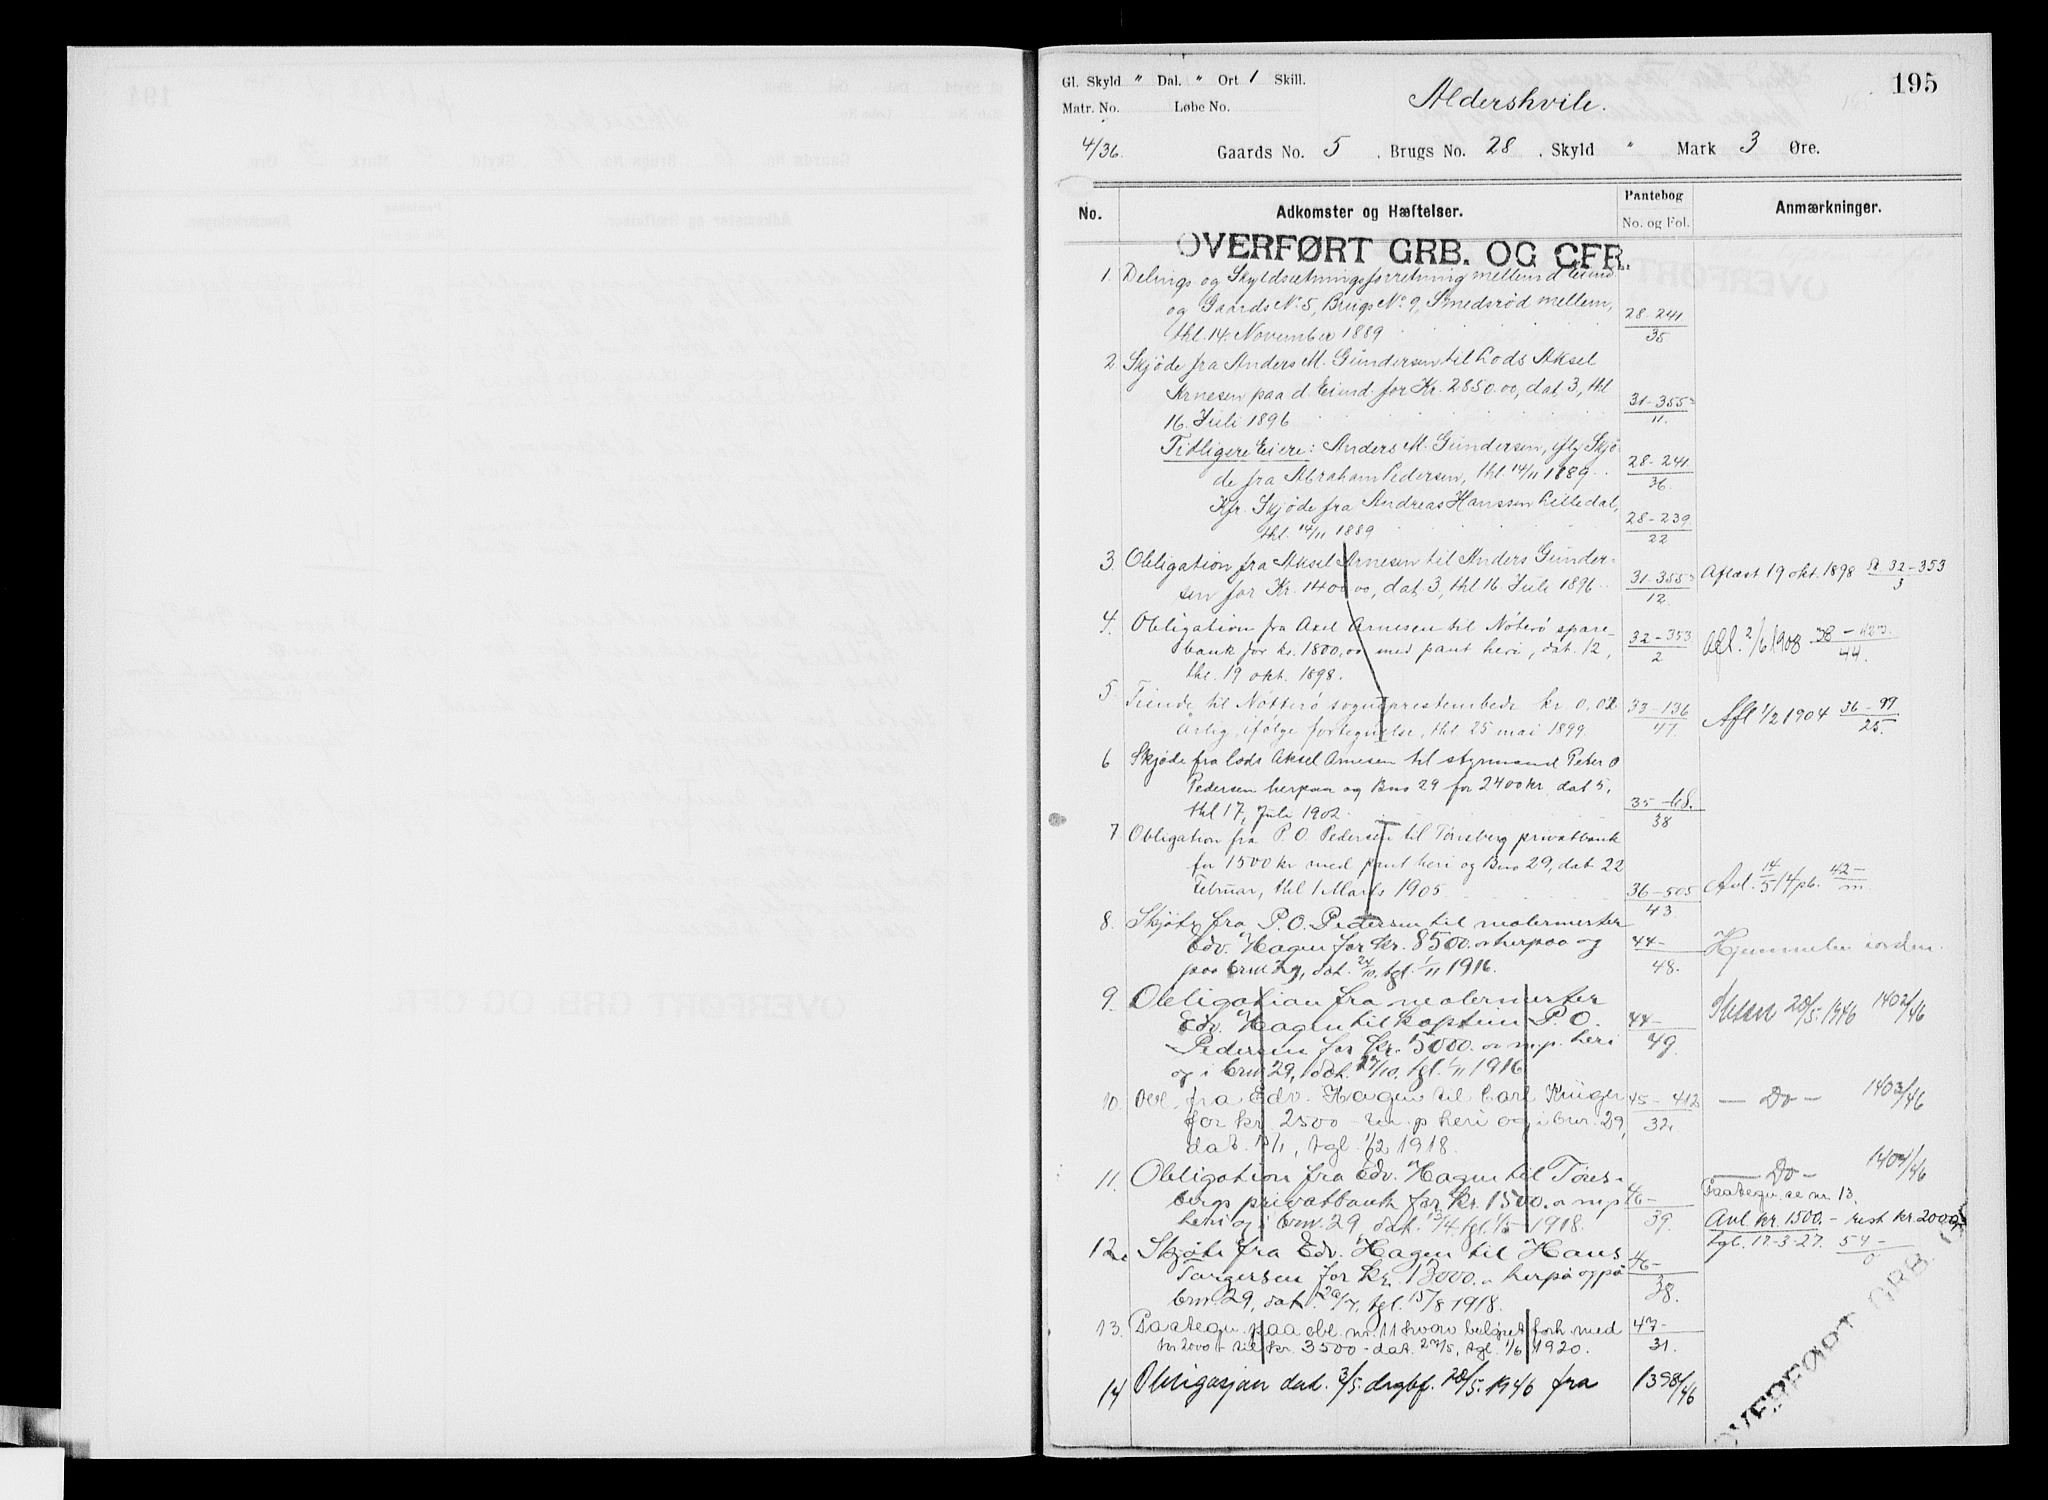 Gl. Skyld " Dal. " Ort 1 Skill.
195
Matr. No. Løbe No.
Aldershvile.
4/36. Gaards No. 5. Brugs No. 28. Skyld " Mark 3 Øre.
No. Adkomster og Hæftelser. Pantebog No. og Fol. Anmærkninger.
OVERFØRT GRB. OG CFR.
1. Delings og Skyldsætningsforretning mellem d Eiend.
og Gaards No 5, Brugs No 9, Smedsrød mellem, 28-241/35
thl. 14. November 1889
2 Skjøde fra Anders M. Gundersen til Lods Aksel
Arnesen paa d. Eiend. for Kr. 2850.00, dat. 3, thl 31-355/11
16. Juli 1896
Tidligere Eiere: Anders M. Gundersen, iflg Skjø-
de fra Abraham Pedersen, thl 14/11 1889 28-241/36
Kfr. Skjøde fra Andreas Hanssen Lilledal,
thl. 14/11 1889 28-239/22
3. Obligation fra Aksel Arnesen til Anders Gunder-
sen for Kr. 1400.00, dat 3, thl 16 Juli 1896 31-355/12 Aflæst 19 okt. 1898 P. 32-353/3
4. Obligation fra Axel Arnesen til Nøterø spare-
bank for kr. 1800,00 med pant heri, dat. 12, 32-353/2 Afl. 2/6 1908 38-423/44.
thl. 19 okt. 1898.
5 Tiende til Nøtterø sogneprestembede kr 0,02 33-136/47 Afl 1/2 1904 36-99/25.
Årlig, ifølge fortegnelse, thl 25 mai 1899
6 Skjøde fra lods Aksel Arnesen til styrmand Peter O
Pedersen herpaa og Bno 29 for 2400 kr, dat 5,
thl 17, Juli 1902 35-68./38
7 Obligation fra P. O. Pedersen til Tønsberg privatbank
for 1500 kr med pant heri og Bno 29, dat 22
Februar, thl 1 Marts 1905 36-505/43 Avl. 14/5 14 pb. 42-/m
8. Skjøte fra P. O. Pedersen til malermester
Edv. Hagen for kr. 8500.- herpaa og 44-/48. Hjemmelen iorden.
paa brno 29, dat. 24/10, tgl. 1/11 1916.
9. Obligation fra malermester
Edv. Hagen til kaptein P. O. 44-/49. Slettet 28/5 1946 1402/46
Pedersen for kr. 5000.- m.p. heri
og i brnr 29, dat. 27/10, tgl. 1/11 1916
10. Obl. fra Edv. Hagen til Carl Krüger 45-412/32. - Do - 1403/46
for kr 2500 - m. p heri og i bnr. 29,
dat. 12/1, tgl. 1/2 1918.
11. Obligation fra Edv. Hagen til Tøns- - Do - 1404/46
bergs privatbank for kr. 1500.- m.p 46-/39. Paategn. se nr. 13.
heri og i brnr. 29, dat. 13/4, tgl. 1/5 1918. Avl. kr. 1500.- rest kr. 2000
12. Skjøte fra Edv. Hagen til Hans 46-/38. tgl. 17-3-27. 54-/
Torgersen for kr. 13000.- herpå og på
brnr. 29, dat. 29/7, tgl. 15/8 1918.
13. Paategn. paa obl. nr. 11 hvorv beløpet forh. med 47-/31.
kr 2000 - til kr. 3500 - dat. 27/5, tgl. 1/6 1920.
14 Obligasjon dat. 3/5. dagbf. 28/5. 1946 fra 1398/46
OVERFØRT GRB.